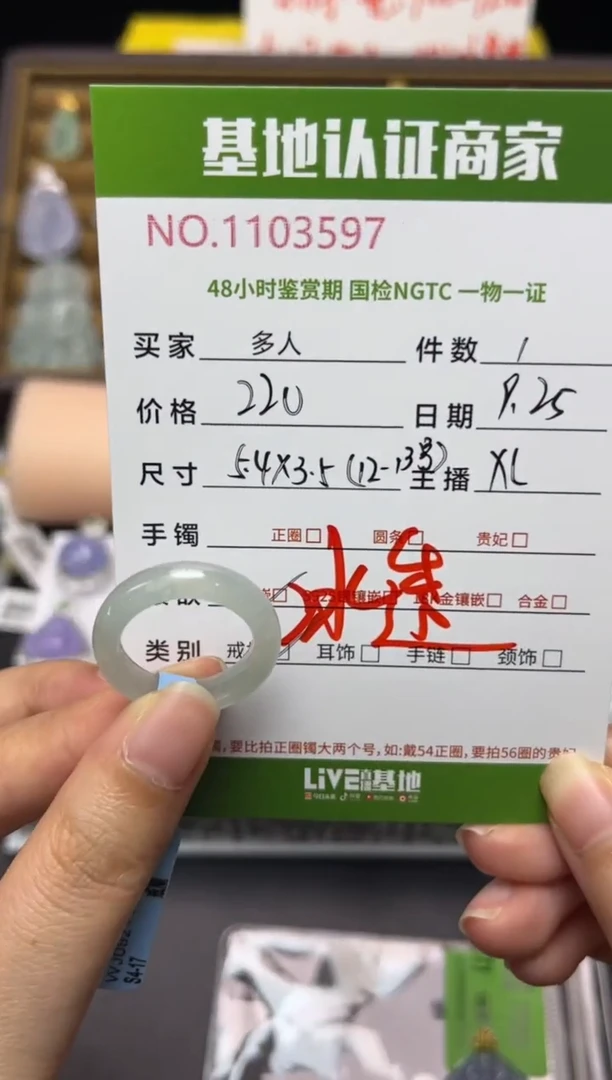 基地认证商家
NO.1103597
48小时鉴赏期 国检NGTC 一物一证
买家 多人 件数 1
价格 220 日期 9.25
尺寸 5.4X3.5 (12-13号) 主播 XL
手镯 正圈□ 圆条□ 贵妃□
金镶嵌□ 合金□
类别 耳饰□ 手链□ 颈饰□
,要比拍正圈镯大两个号,如:戴54正圈,要拍56圈的贵妃
LiVE直播基地
S4-17